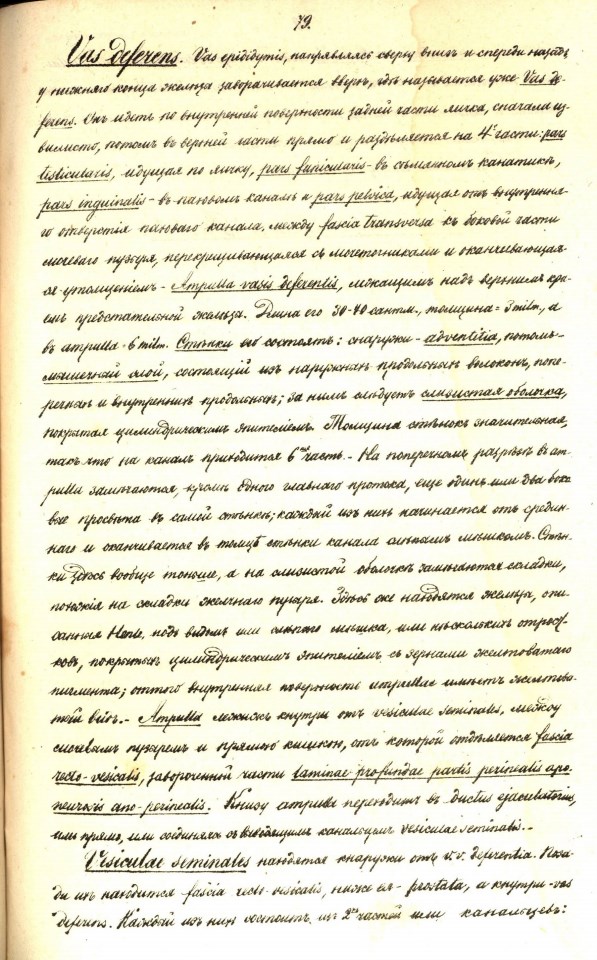 79.
Vas deferens. Vas epididymis, направляясь сверху внизъ и спереди назадъ,
у нижняго конца железы заворачивается вверхъ, гдѣ называется уже Vas de-
ferens. Онъ идетъ по внутренней поверхности задней части яичка, сначала из-
вилисто, потомъ въ верхней части прямо и раздѣляется на 4 части: pars
testicularis, идущая по яичку, pars funicularis - въ сѣмянномъ канатикѣ,
pars inguinalis - въ паховомъ каналѣ и pars pelvica, идущая отъ внутрення-
го отверстія паховаго канала, между fascia transversa къ боковой части
мочеваго пузыря, перекрещивающаяся съ мочеточниками и оканчивающая-
ся утолщеніемъ - Ampulla vasis deferentis, лежащимъ надъ верхнимъ кра-
емъ предстательной железы. Длина его 30-40 сантм., толщина = 3 milm., а
въ ampulla - 6 milm. Стѣнки его состоятъ: снаружи - adventitia, потомъ-
мышечный слой, состоящій изъ наружныхъ продольныхъ волоконъ, попе-
речныхъ и внутреннихъ продольныхъ; за нимъ слѣдуетъ слизистая оболочка,
покрытая цилиндрическимъ эпителіемъ. Толщина стѣнокъ значительная,
такъ что на каналъ приходится 6 часть. - На поперечномъ разрѣзѣ въ am-
pulla замѣчаются, кромѣ одного главнаго протока, еще одинъ или два боко-
вые просвѣта въ самой стѣнкѣ; каждый изъ нихъ начинается отъ средин-
наго и оканчивается въ толщѣ стѣнки канала слѣпымъ мѣшкомъ. Стѣн-
ки здѣсь вообще тоньше, а на слизистой оболочкѣ замѣчаются складки,
похожія на складки желчнаго пузыря. Здѣсь же находятся железы, опи-
санныя Henle, подъ видомъ или слѣпаго мѣшка, или нѣсколькихъ отрост-
ковъ, покрытыхъ цилиндрическимъ эпителіемъ съ зернами желтоватаго
пигмента; оттого внутренняя поверхность ampullae имѣетъ желтова-
тый видъ. - Ampulla лежитъ кнутри отъ vesiculae seminales, между
мочевымъ пузыремъ и прямою кишкою, отъ которой отдѣляется fascia
recto-vesicalis, завороченной части laminae profundae partis perinealis apo-
neurosis ano-perinealis. Книзу ampulla переходитъ въ ductus ejaculatorius,
или прямо, или соединяясь съ выводящимъ канальцемъ vesiculae seminalis. -
Vesiculae seminales находятся кнаружи отъ v.v. deferentia. Поза-
ди ихъ находится fascia recto-vesicalis, ниже ея - prostata, а кнутри - vas
deferens. Каждый изъ нихъ состоитъ изъ 2хъ частей или канальцевъ: